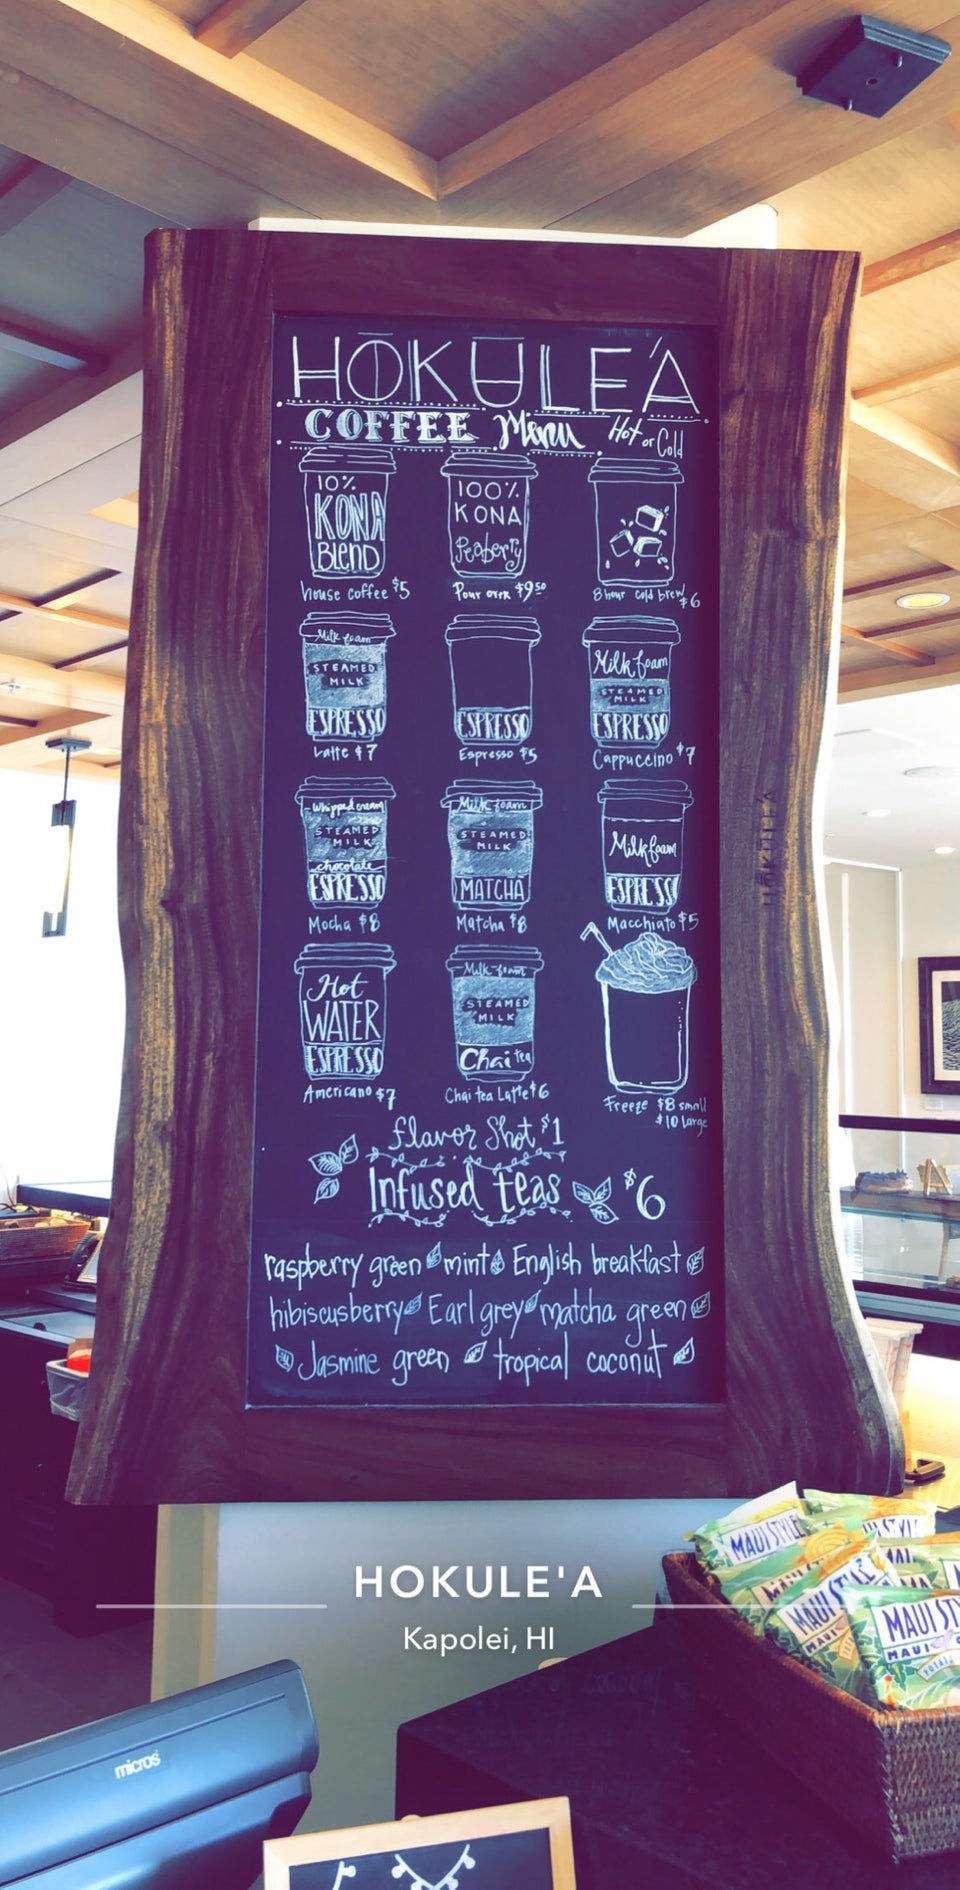 HŌKULE'A
COFFEE Menu Hot or Cold
10%
KONA
BLEND
house coffee $5
100%
KONA
Peaberry
Pour over $9.50
8 hour cold brew $6
Milk foam
STEAMED
MILK
ESPRESSO
Latte $7
ESPRESSO
Espresso $5
Milk foam
STEAMED
MILK
ESPRESSO
Cappuccino $7
Whipped cream
STEAMED
MILK
chocolate
ESPRESSO
Mocha $8
Milk foam
STEAMED
MILK
MATCHA
Matcha $8
Milk foam
ESPRESSO
Macchiato $5
Hot
WATER
ESPRESSO
Americano $7
Milk foam
STEAMED
MILK
Chai tea
Chai tea Latte $6
Freeze $8 small
$10 large
flavor Shot $1
Infused teas $6
raspberry green mint English breakfast
hibiscusberry Earl grey matcha green
Jasmine green tropical coconut
HOKULE'A
MAUI STYLE
MAUI STYLE
MAUI
MAUI STY
MAUI
HOKULE'A
Kapolei, HI
micros